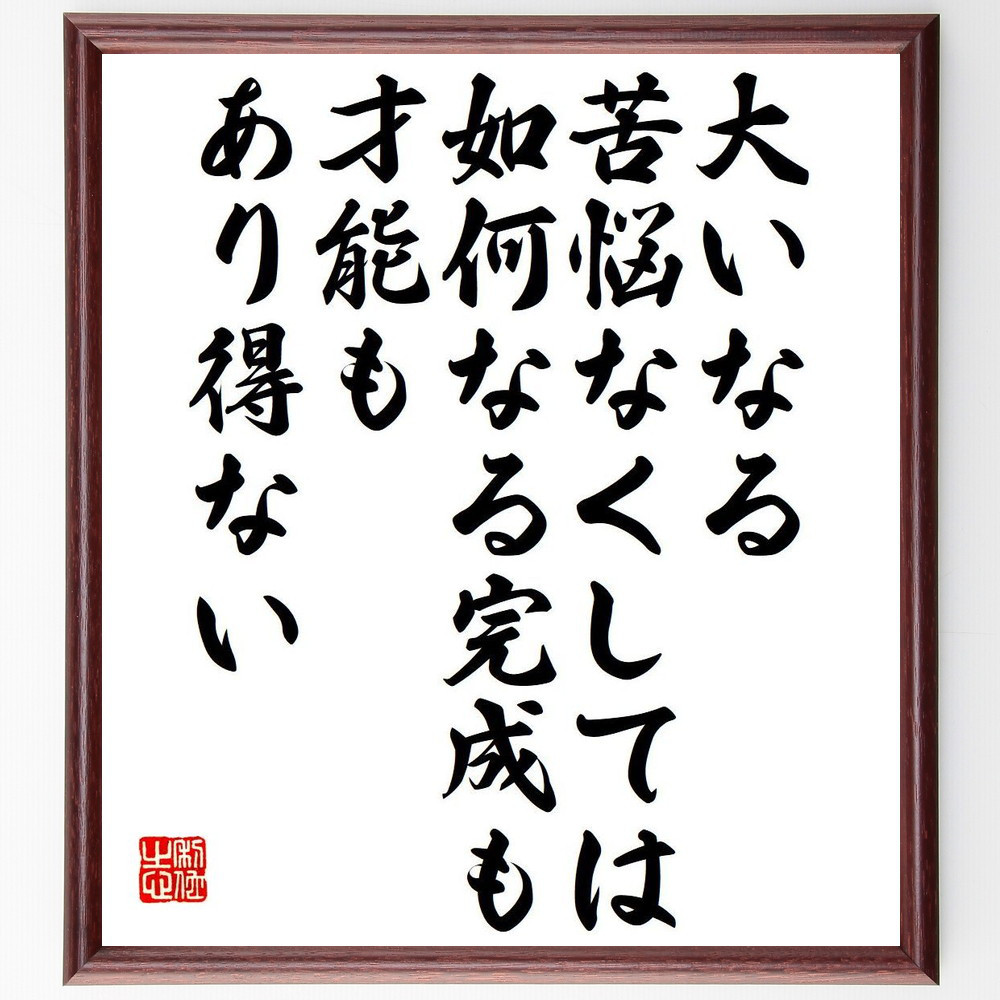 大いなる
苦悩なくしては
如何なる完成も
才能も
あり得ない